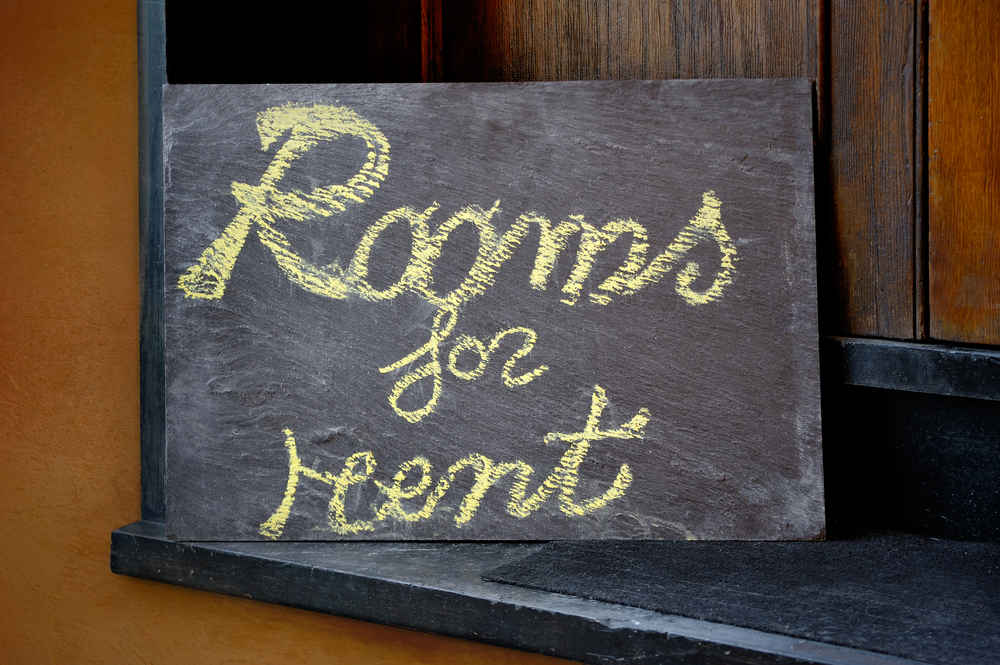 Rooms
for
reent